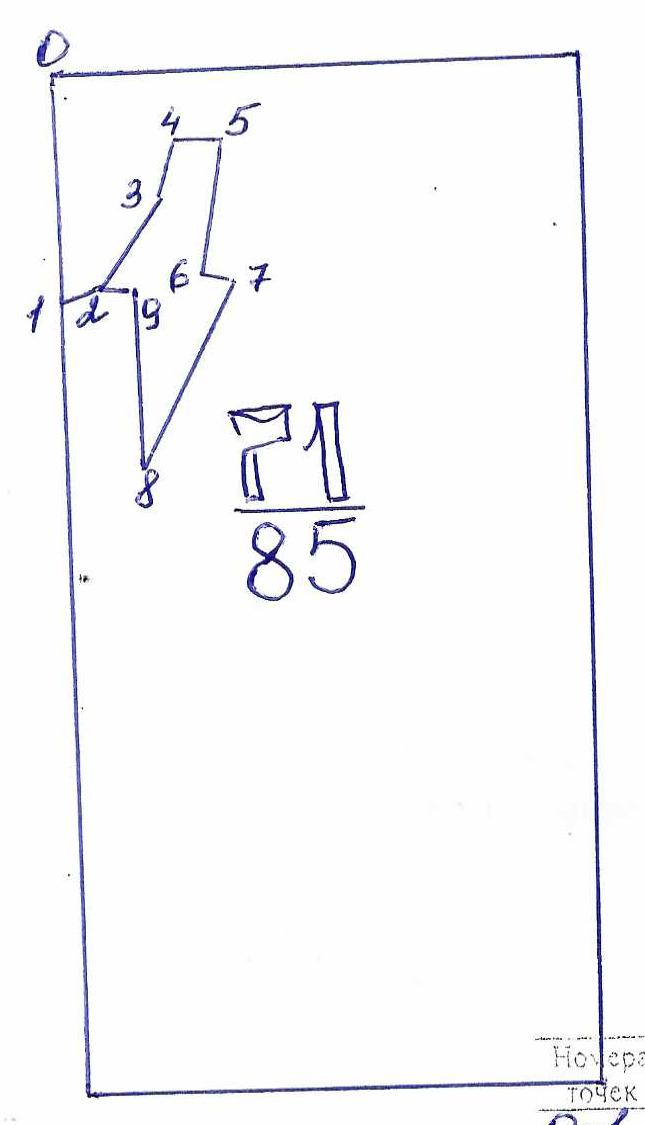 0
4 5
3
6 7
1 2 9
8
71
85
Номера
точек